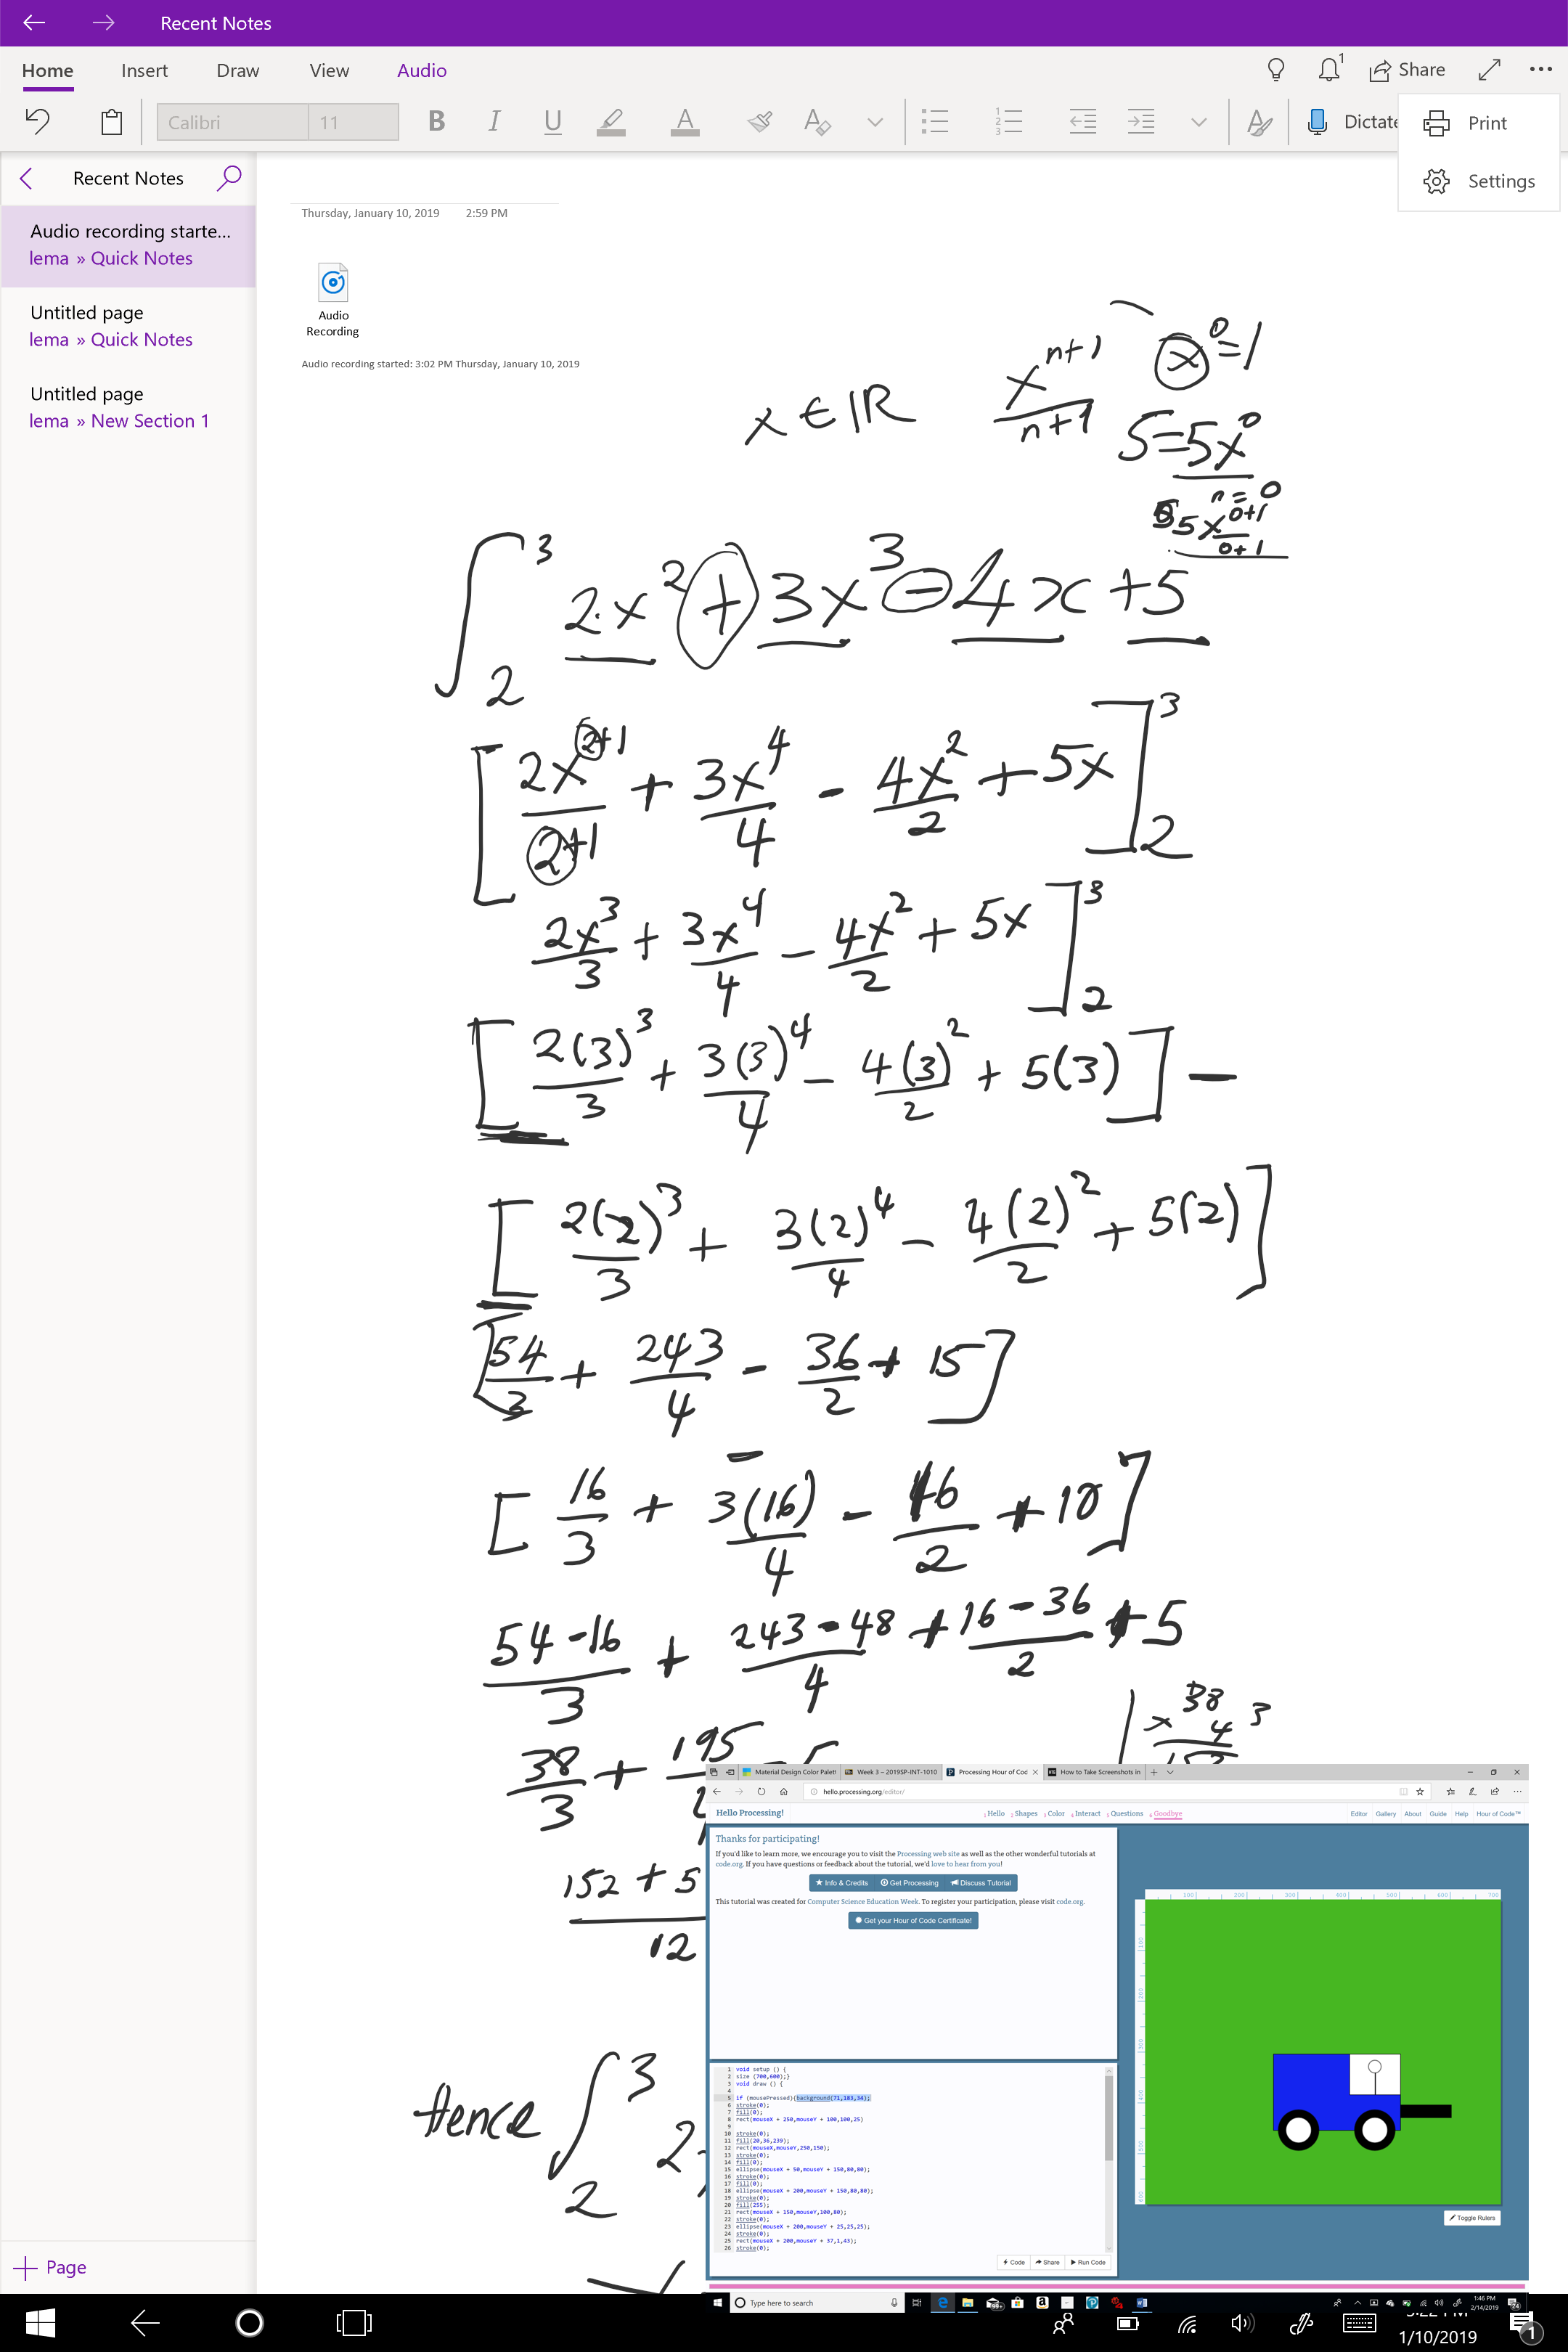 Recent Notes
Home Insert Draw View Audio
1 Share
Calibri 11 B I U A A Dictate
Print
Settings
Recent Notes
Audio recording starte...
lema » Quick Notes
Untitled page
lema » Quick Notes
Untitled page
lema » New Section 1
Page
Thursday, January 10, 2019 2:59 PM
Audio
Recording
Audio recording started: 3:02 PM Thursday, January 10, 2019
x ∈ IR x^(n+1)/(n+1) x^0=1
5=5x^0
n=0
5x^(0+1)/(0+1)
∫_2^3 2x^2 + 3x^3 - 4x + 5
[2x^(2+1)/(2+1) + 3x^4/4 - 4x^2/2 + 5x]_2^3
2x^3/3 + 3x^4/4 - 4x^2/2 + 5x]_2^3
[2(3)^3/3 + 3(3)^4/4 - 4(3)^2/2 + 5(3)] -
[2(2)^3/3 + 3(2)^4/4 - 4(2)^2/2 + 5(2)]
[54/3 + 243/4 - 36/2 + 15]
-
[16/3 + 3(16)/4 - 16/2 + 10]
54-16/3 + 243-48/4 + 16-36/2 + 5
38/3 + 195
x 38
4 3
152 + 5
12
Hence ∫_2^3 2
Material Design Color Palett
Week 3 – 2019SP-INT-1010
Processing Hour of Cod
How to Take Screenshots in
hello.processing.org/editor/
Hello Processing!
1 Hello 2 Shapes 3 Color 4 Interact 5 Questions 6 Goodbye
Editor Gallery About Guide Help Hour of Code™
Thanks for participating!
If you'd like to learn more, we encourage you to visit the Processing web site as well as the other wonderful tutorials at
code.org. If you have questions or feedback about the tutorial, we'd love to hear from you!
Info & Credits Get Processing Discuss Tutorial
This tutorial was created for Computer Science Education Week. To register your participation, please visit code.org.
Get your Hour of Code Certificate!
100 200 300 400 500 600 700
100
200
300
400
500
600
1 void setup () {
2 size (700,600);}
3 void draw () {
4
5 if (mousePressed){background(71,183,34);
6 stroke(0);
7 fill(0);
8 rect(mouseX + 250,mouseY + 100,100,25)
9
10 stroke(0);
11 fill(20,36,239);
12 rect(mouseX,mouseY,250,150);
13 stroke(0);
14 fill(0);
15 ellipse(mouseX + 50,mouseY + 150,80,80);
16 stroke(0);
17 fill(0);
18 ellipse(mouseX + 200,mouseY + 150,80,80);
19 stroke(0);
20 fill(255);
21 rect(mouseX + 150,mouseY,100,80);
22 stroke(0);
23 ellipse(mouseX + 200,mouseY + 25,25,25);
24 stroke(0);
25 rect(mouseX + 200,mouseY + 37,1,43);
26 stroke(0);
Toggle Rulers
Code Share Run Code
Type here to search
1:46 PM
2/14/2019
1/10/2019
1